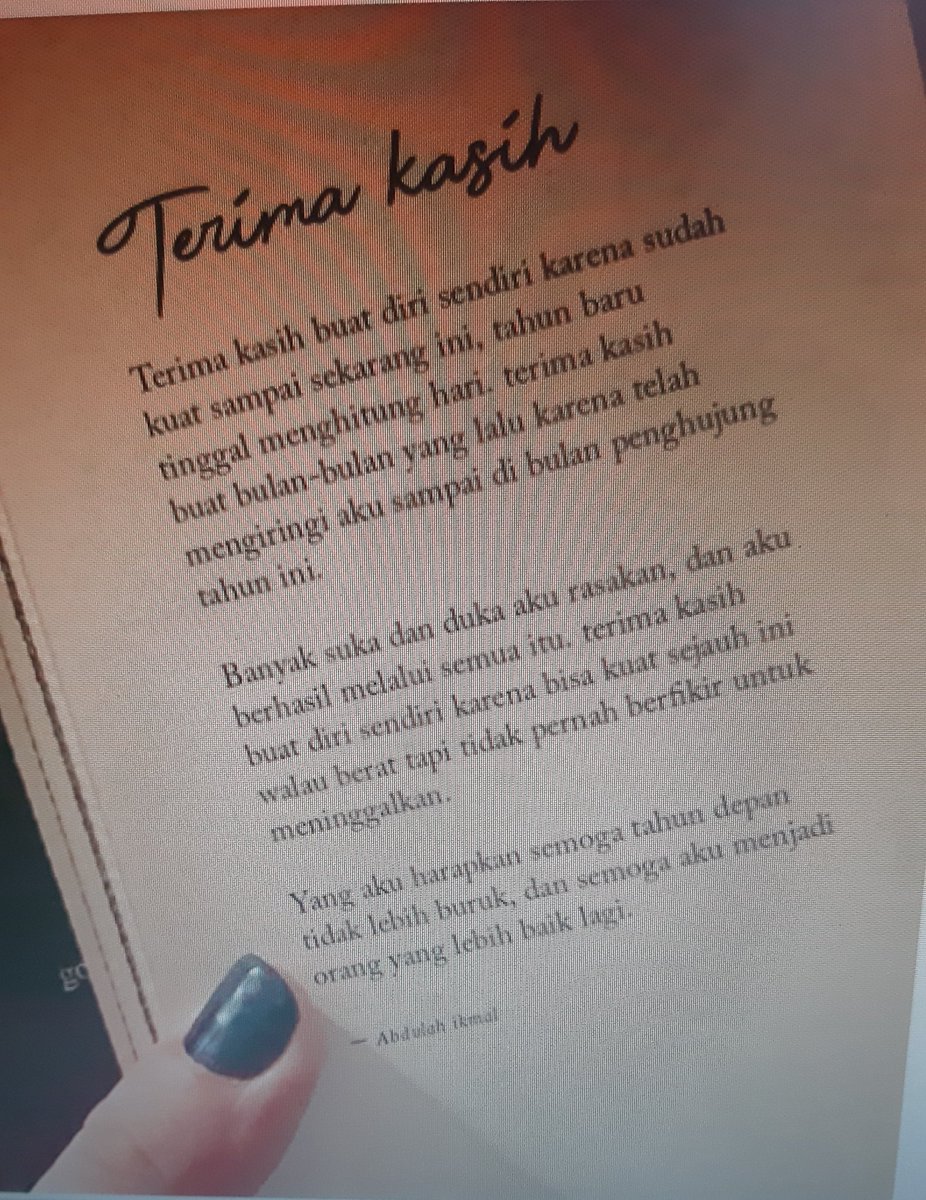 Terima kasih
Terima kasih buat diri sendiri karena sudah
kuat sampai sekarang ini, tahun baru
tinggal menghitung hari. terima kasih
buat bulan-bulan yang lalu karena telah
mengiringi aku sampai di bulan penghujung
tahun ini.
Banyak suka dan duka aku rasakan, dan aku
berhasil melalui semua itu. terima kasih
buat diri sendiri karena bisa kuat sejauh ini
walau berat tapi tidak pernah berfikir untuk
meninggalkan.
Yang aku harapkan semoga tahun depan
tidak lebih buruk, dan semoga aku menjadi
orang yang lebih baik lagi.
— Abdulah ikmal